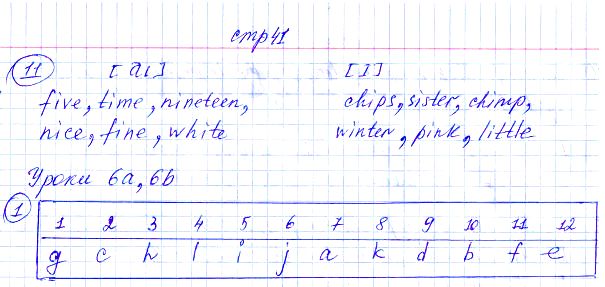 стр 41
11 [ai] [I]
five, time, nineteen, chips, sister, chimp,
nice, fine, white winter, pink, little
Уроки 6a, 6b
1
1 2 3 4 5 6 7 8 9 10 11 12
g c h l i j a k d b f e